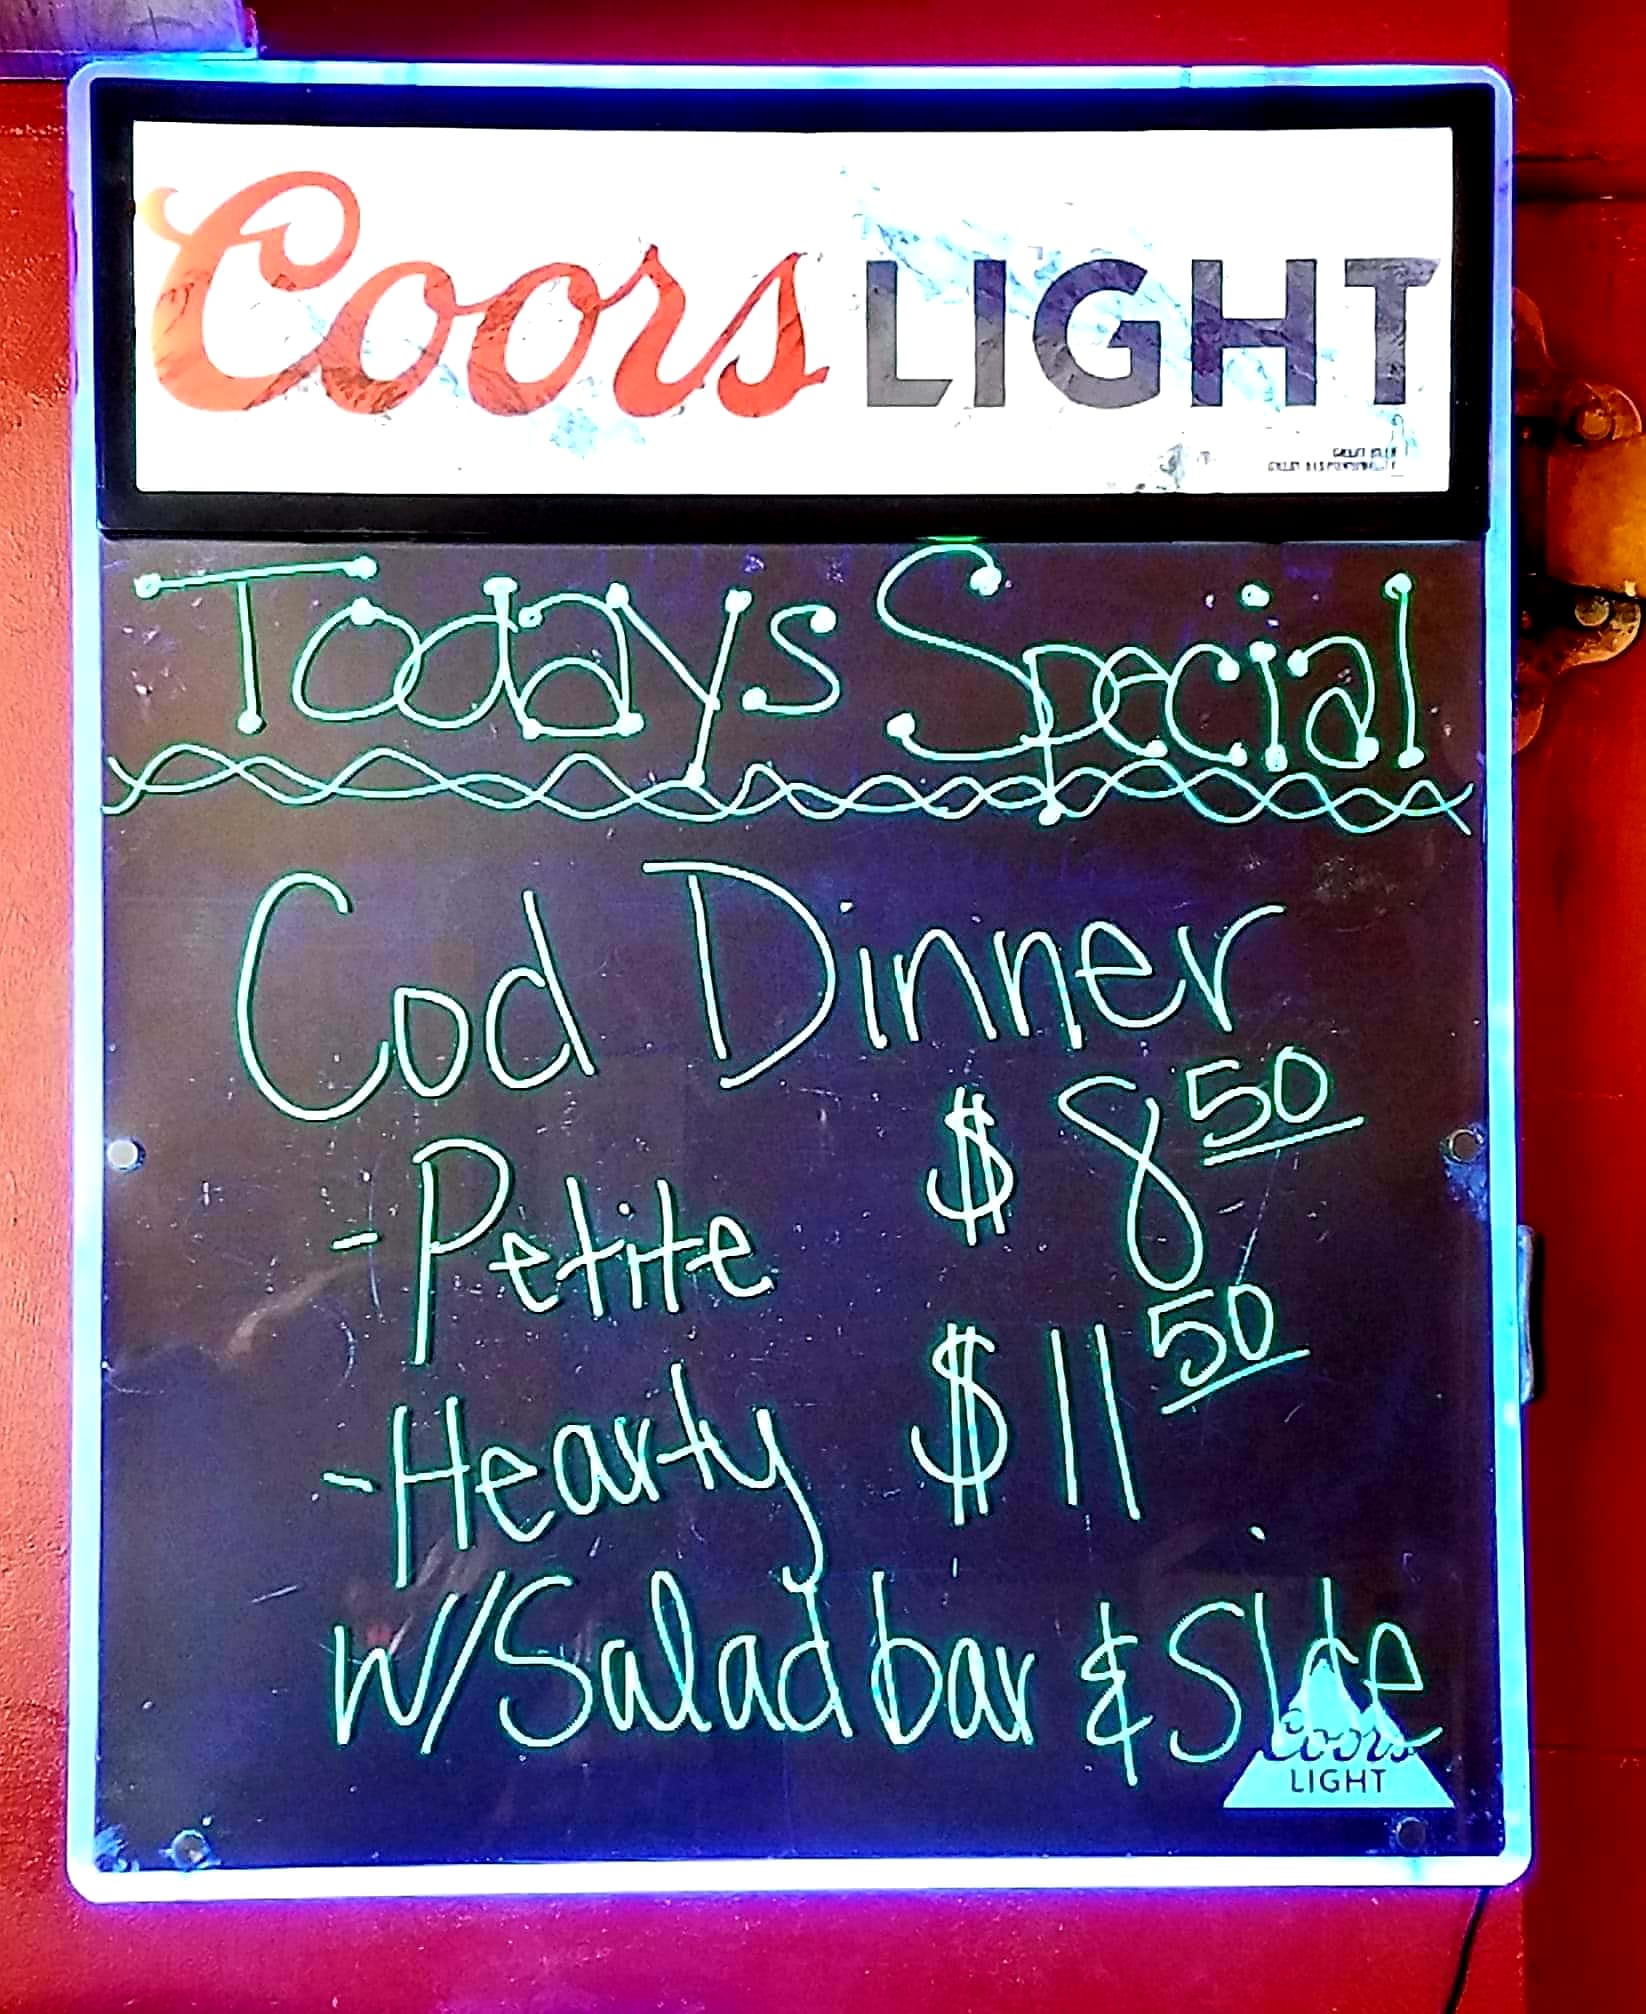 Coors LIGHT
Todays Special
Cod Dinner
-Petite $8 50
-Hearty $11 50
w/Salad bar & Side
Coors
LIGHT